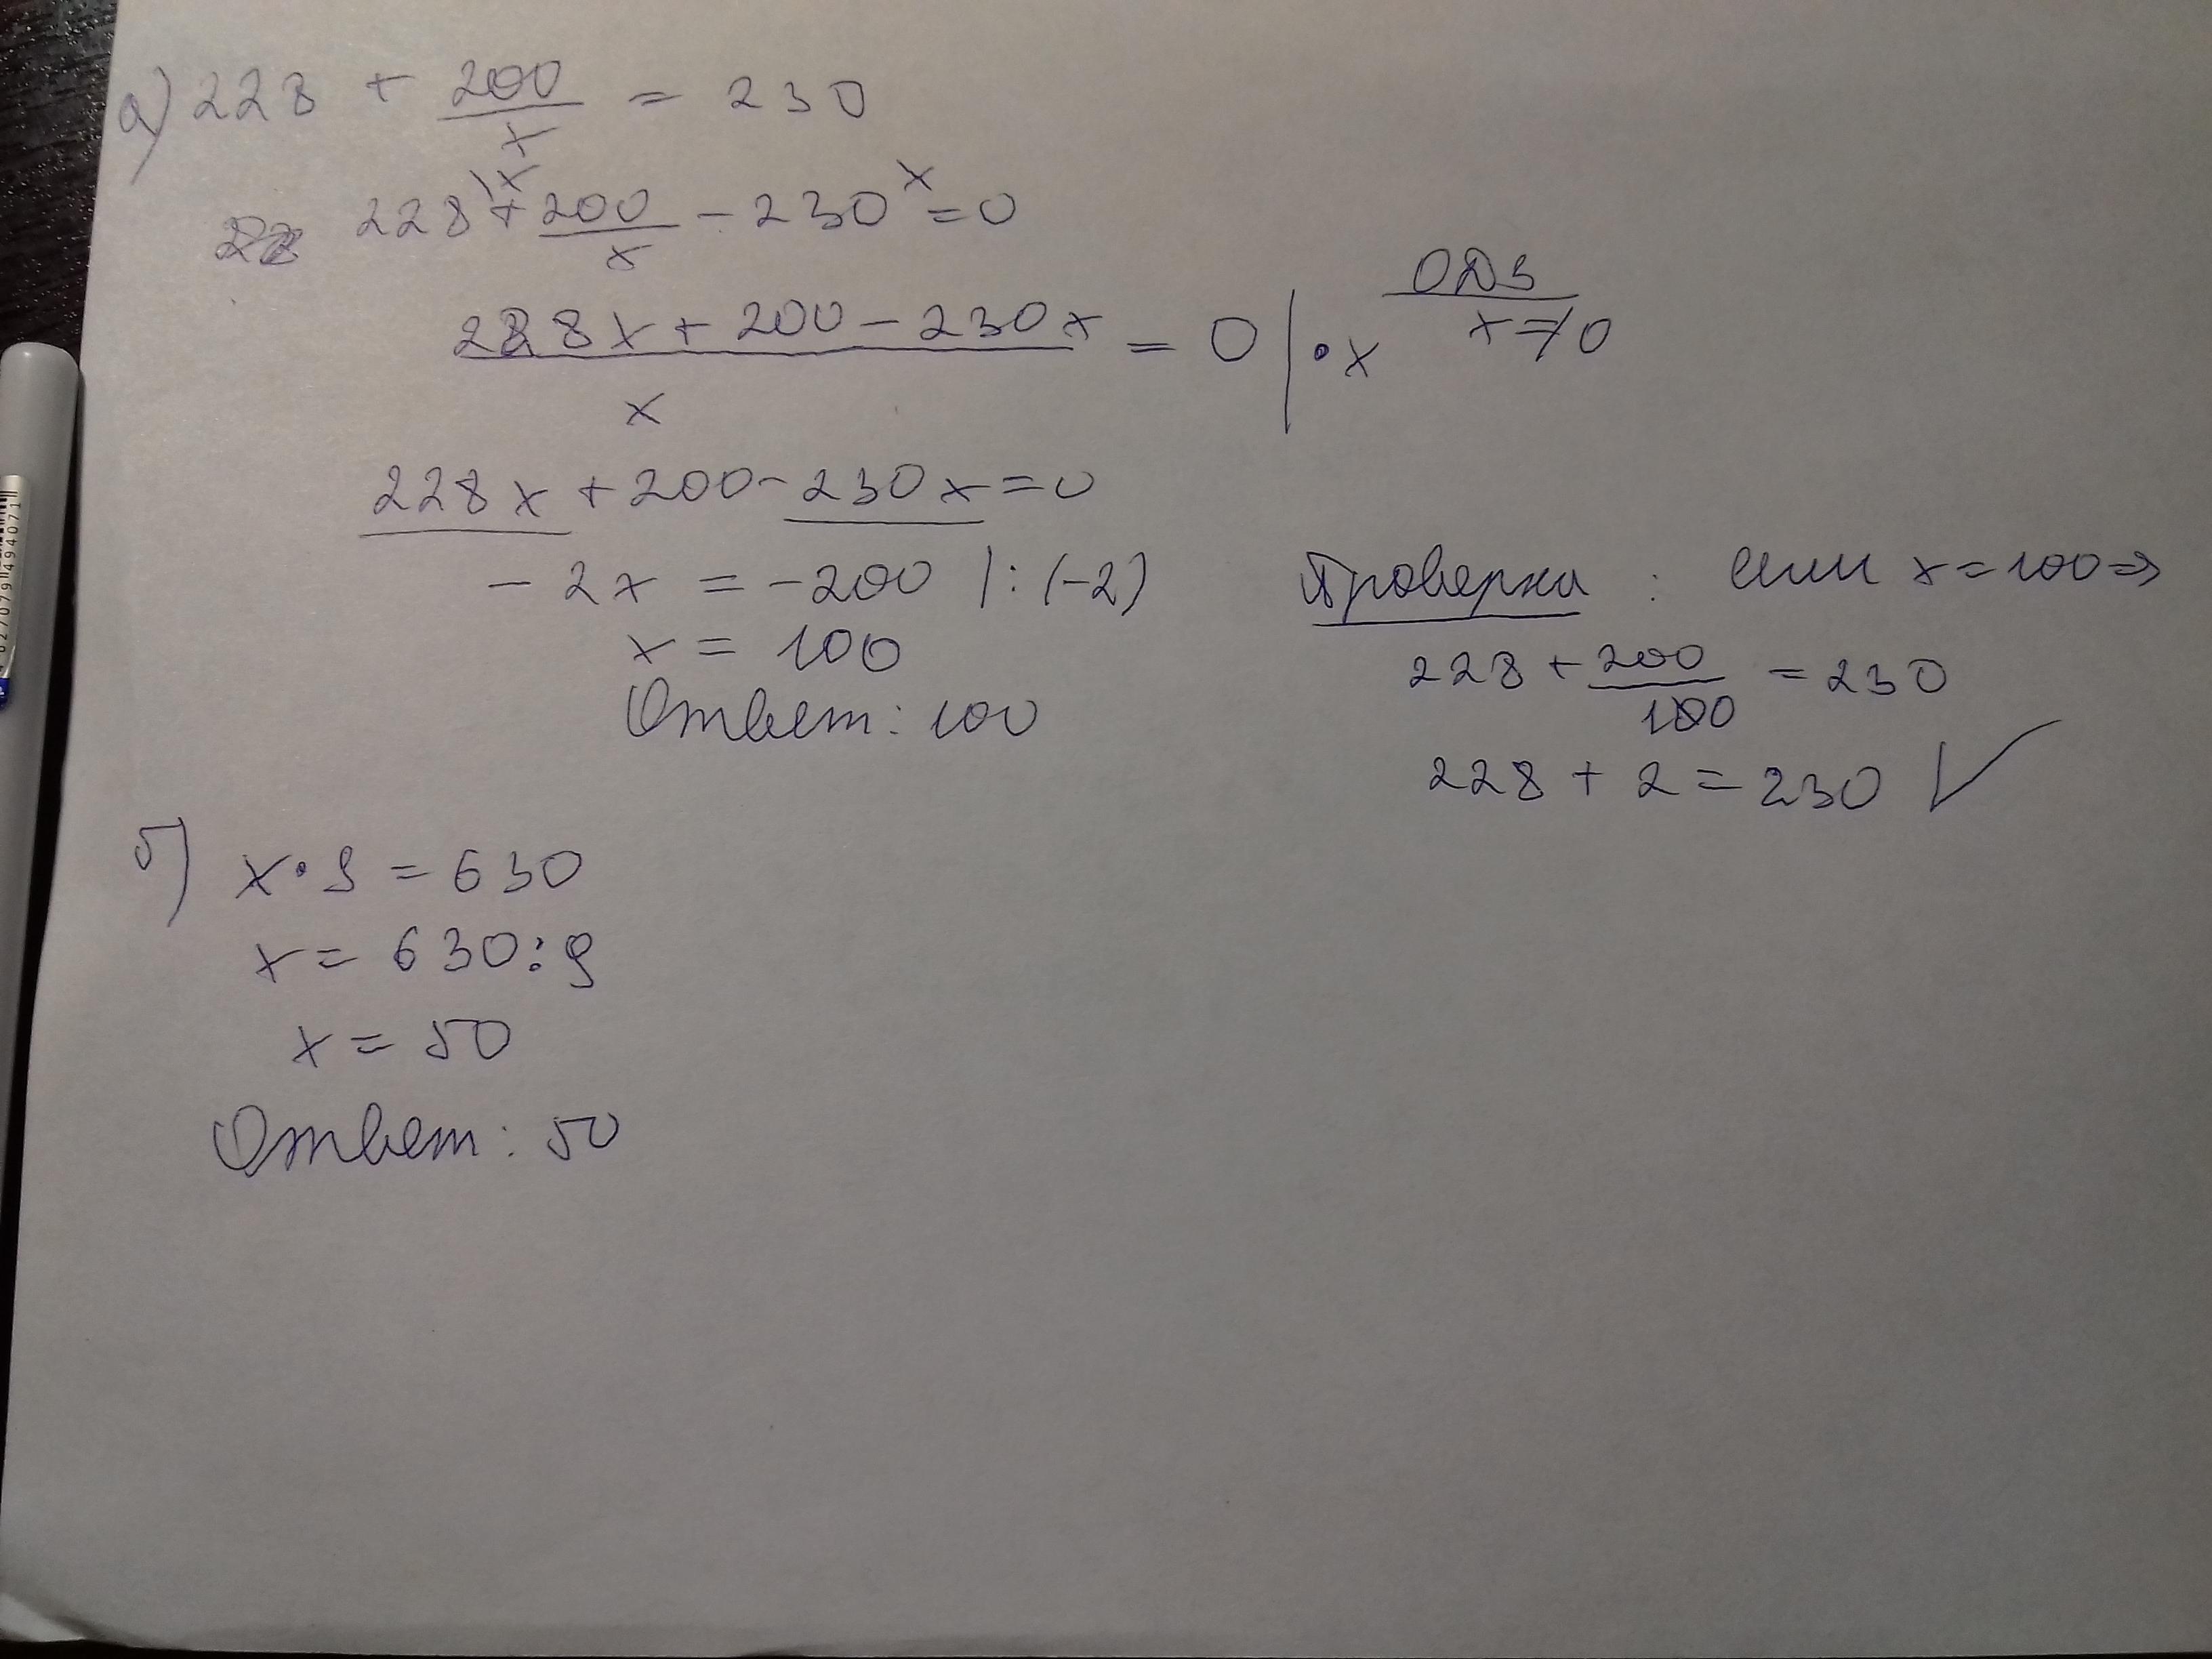 а) 228 + 200/x = 230
228\x + 200/x - 230x = 0
228x + 200 - 230x / x = 0 | · x
ОДЗ
x ≠ 0
228x + 200 - 230x = 0
- 2x = -200 | : (-2)
x = 100
Ответ: 100
Проверка : если x = 100 ⇒
228 + 200/100 = 230
228 + 2 = 230 ✓
б) x · 9 = 630
x = 630 : 9
x = 50
Ответ: 50